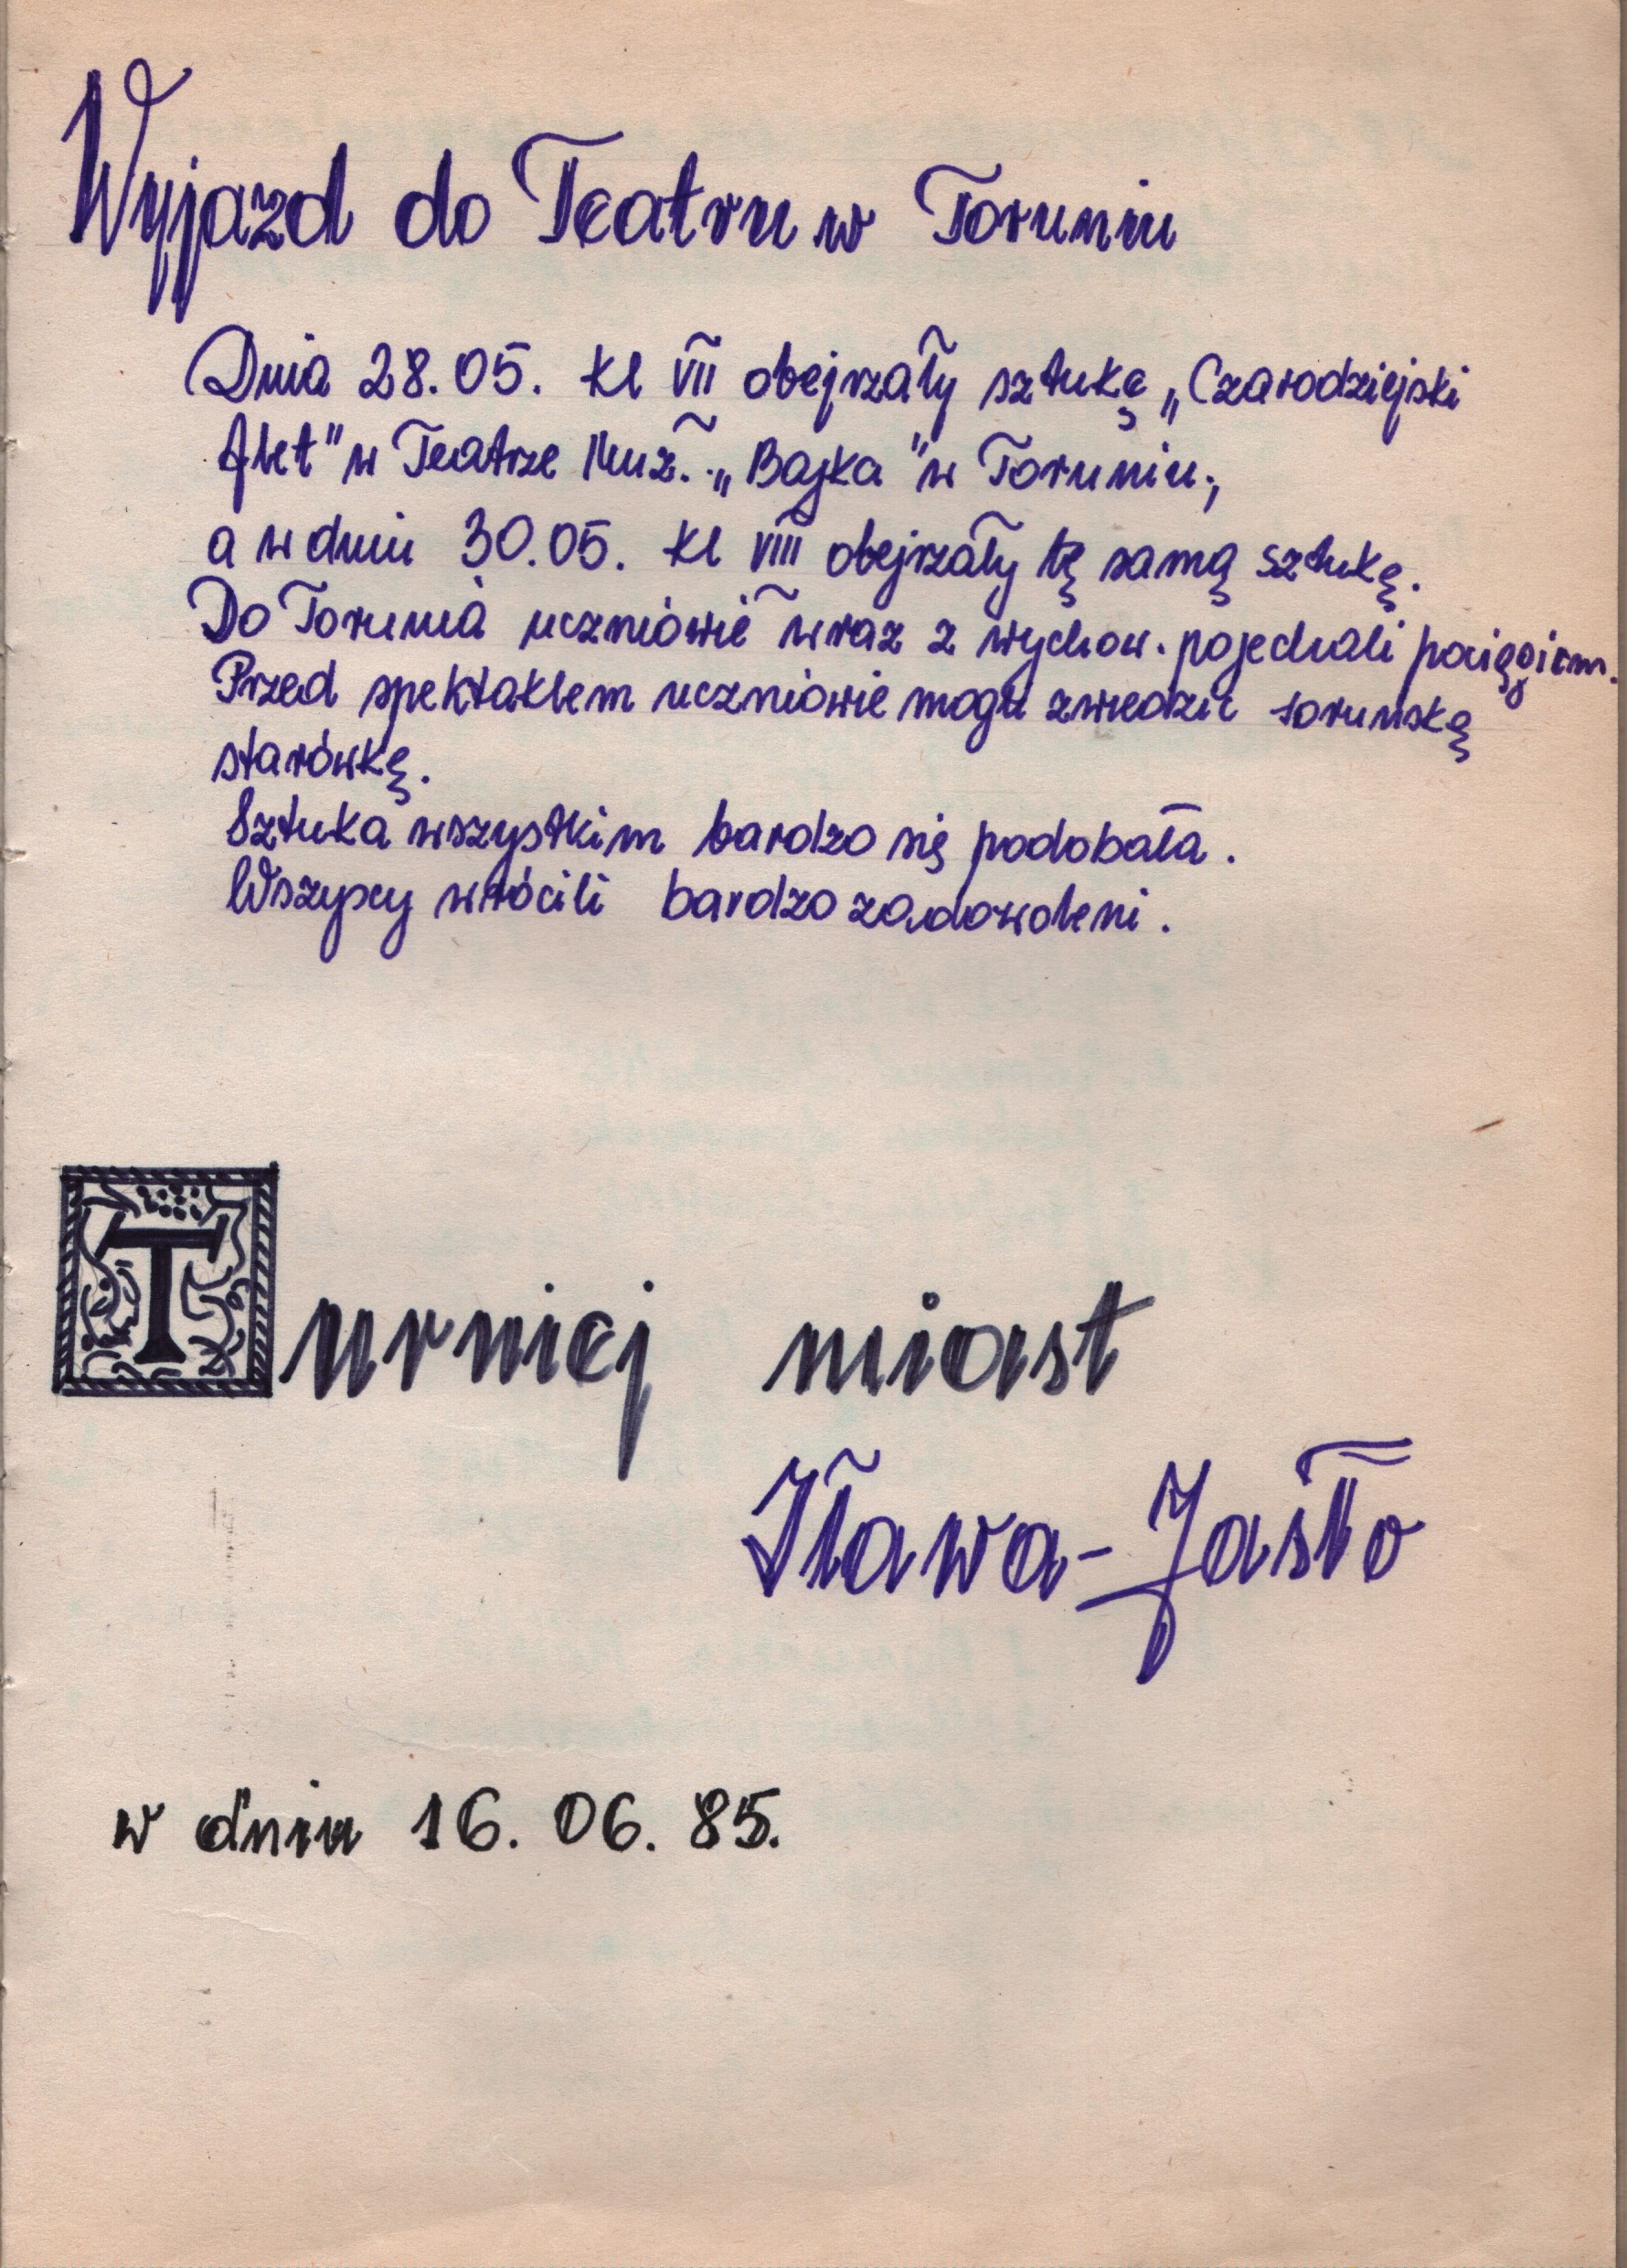 Wyjazd do Teatru w Toruniu
Dnia 28.05. kl VII obejrzały sztukę „Czarodziejski
flet" w Teatrze Muz. „Bajka" w Toruniu,
a w dniu 30.05. kl VIII obejrzały tę samą sztukę.
Do Torunia uczniowie wraz z wychow. pojechali pociągiem.
Przed spektaklem uczniowie mogli zwiedzić toruńską
starówkę.
Sztuka wszystkim bardzo się podobała.
Wszyscy wrócili bardzo zadowoleni.
Turniej miast
Iława-Jasło
w dniu 16. 06. 85.